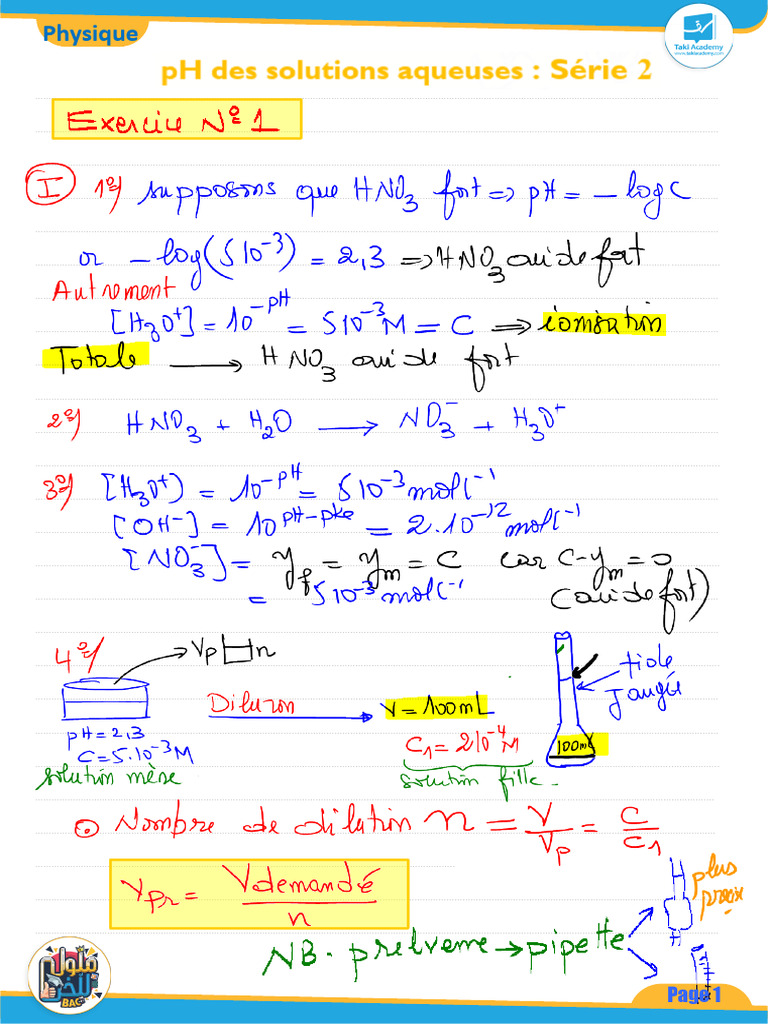 Physique
Taki Academy
www.takiacademy.com
pH des solutions aqueuses : Série 2
Exercice N° 1
I 1°/ supposons que HNO3 fort => pH = - log C
or - log(5 10^-3) = 2,3 => HNO3 acide fort
Autrement
[H3O+] = 10^-pH = 5 10^-3 M = C => ionisation
Totale → HNO3 acide fort
2°/ HNO3 + H2O → NO3^- + H3O+
3°/ [H3O+) = 10^-pH = 5 10^-3 mol L^-1
[OH-] = 10^pH-pke = 2. 10^-12 mol L^-1
[NO3^-] = yf = ym = C car C - ym = 0
= 5 10^-3 mol L^-1 (acide fort)
4°/ Vp n
Dilution V = 100 mL
fiole
jaugée
100mL
pH = 2,3
C = 5.10^-3 M
C1 = 2 10^-4 M
solution mère
solution fille.
Nombre de dilution n = V/Vp = C/C1
Vpr = Vdemandé/n
plus
précix
NB. prélveme → pipette
BAC
Page 1